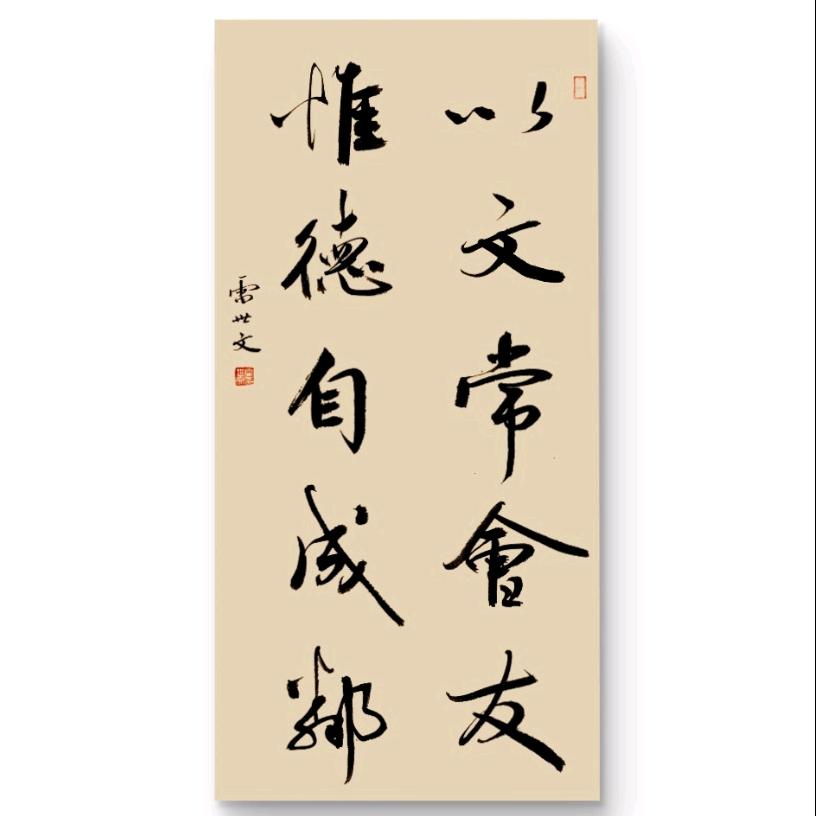 以文常會友
惟德自成鄰
雷世文